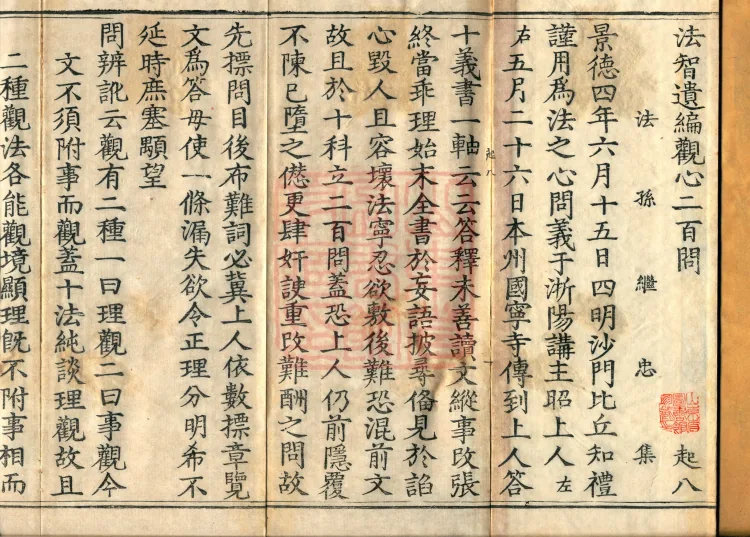 法智遺編觀心二百問
法孫繼忠集 起八
景德四年六月十五日四明沙門比丘知禮
謹用為法之心問義于浙陽講主昭上人左
右五月二十六日本州國寧寺傳到上人答
起八
十義書一軸云云答釋未善讀文縱事改張
終當乖理始末全書於妄語披尋備見於諂
心毀人且容壞法寧忍欲敷後難恐混前文
故且於十科立二百問蓋恐上人仍前隱覆
不陳已墮之愆更肆奸諛重改難酬之問故
先標問目後布難詞必冀上人依數標章覽
文為答毋使一條漏失欲令正理分明希不
延時庶塞顒望
問辨訛云觀有二種一曰理觀二曰事觀今
文不須附事而觀蓋十法純談理觀故且
二種觀法各能觀境顯理旣不附事相而